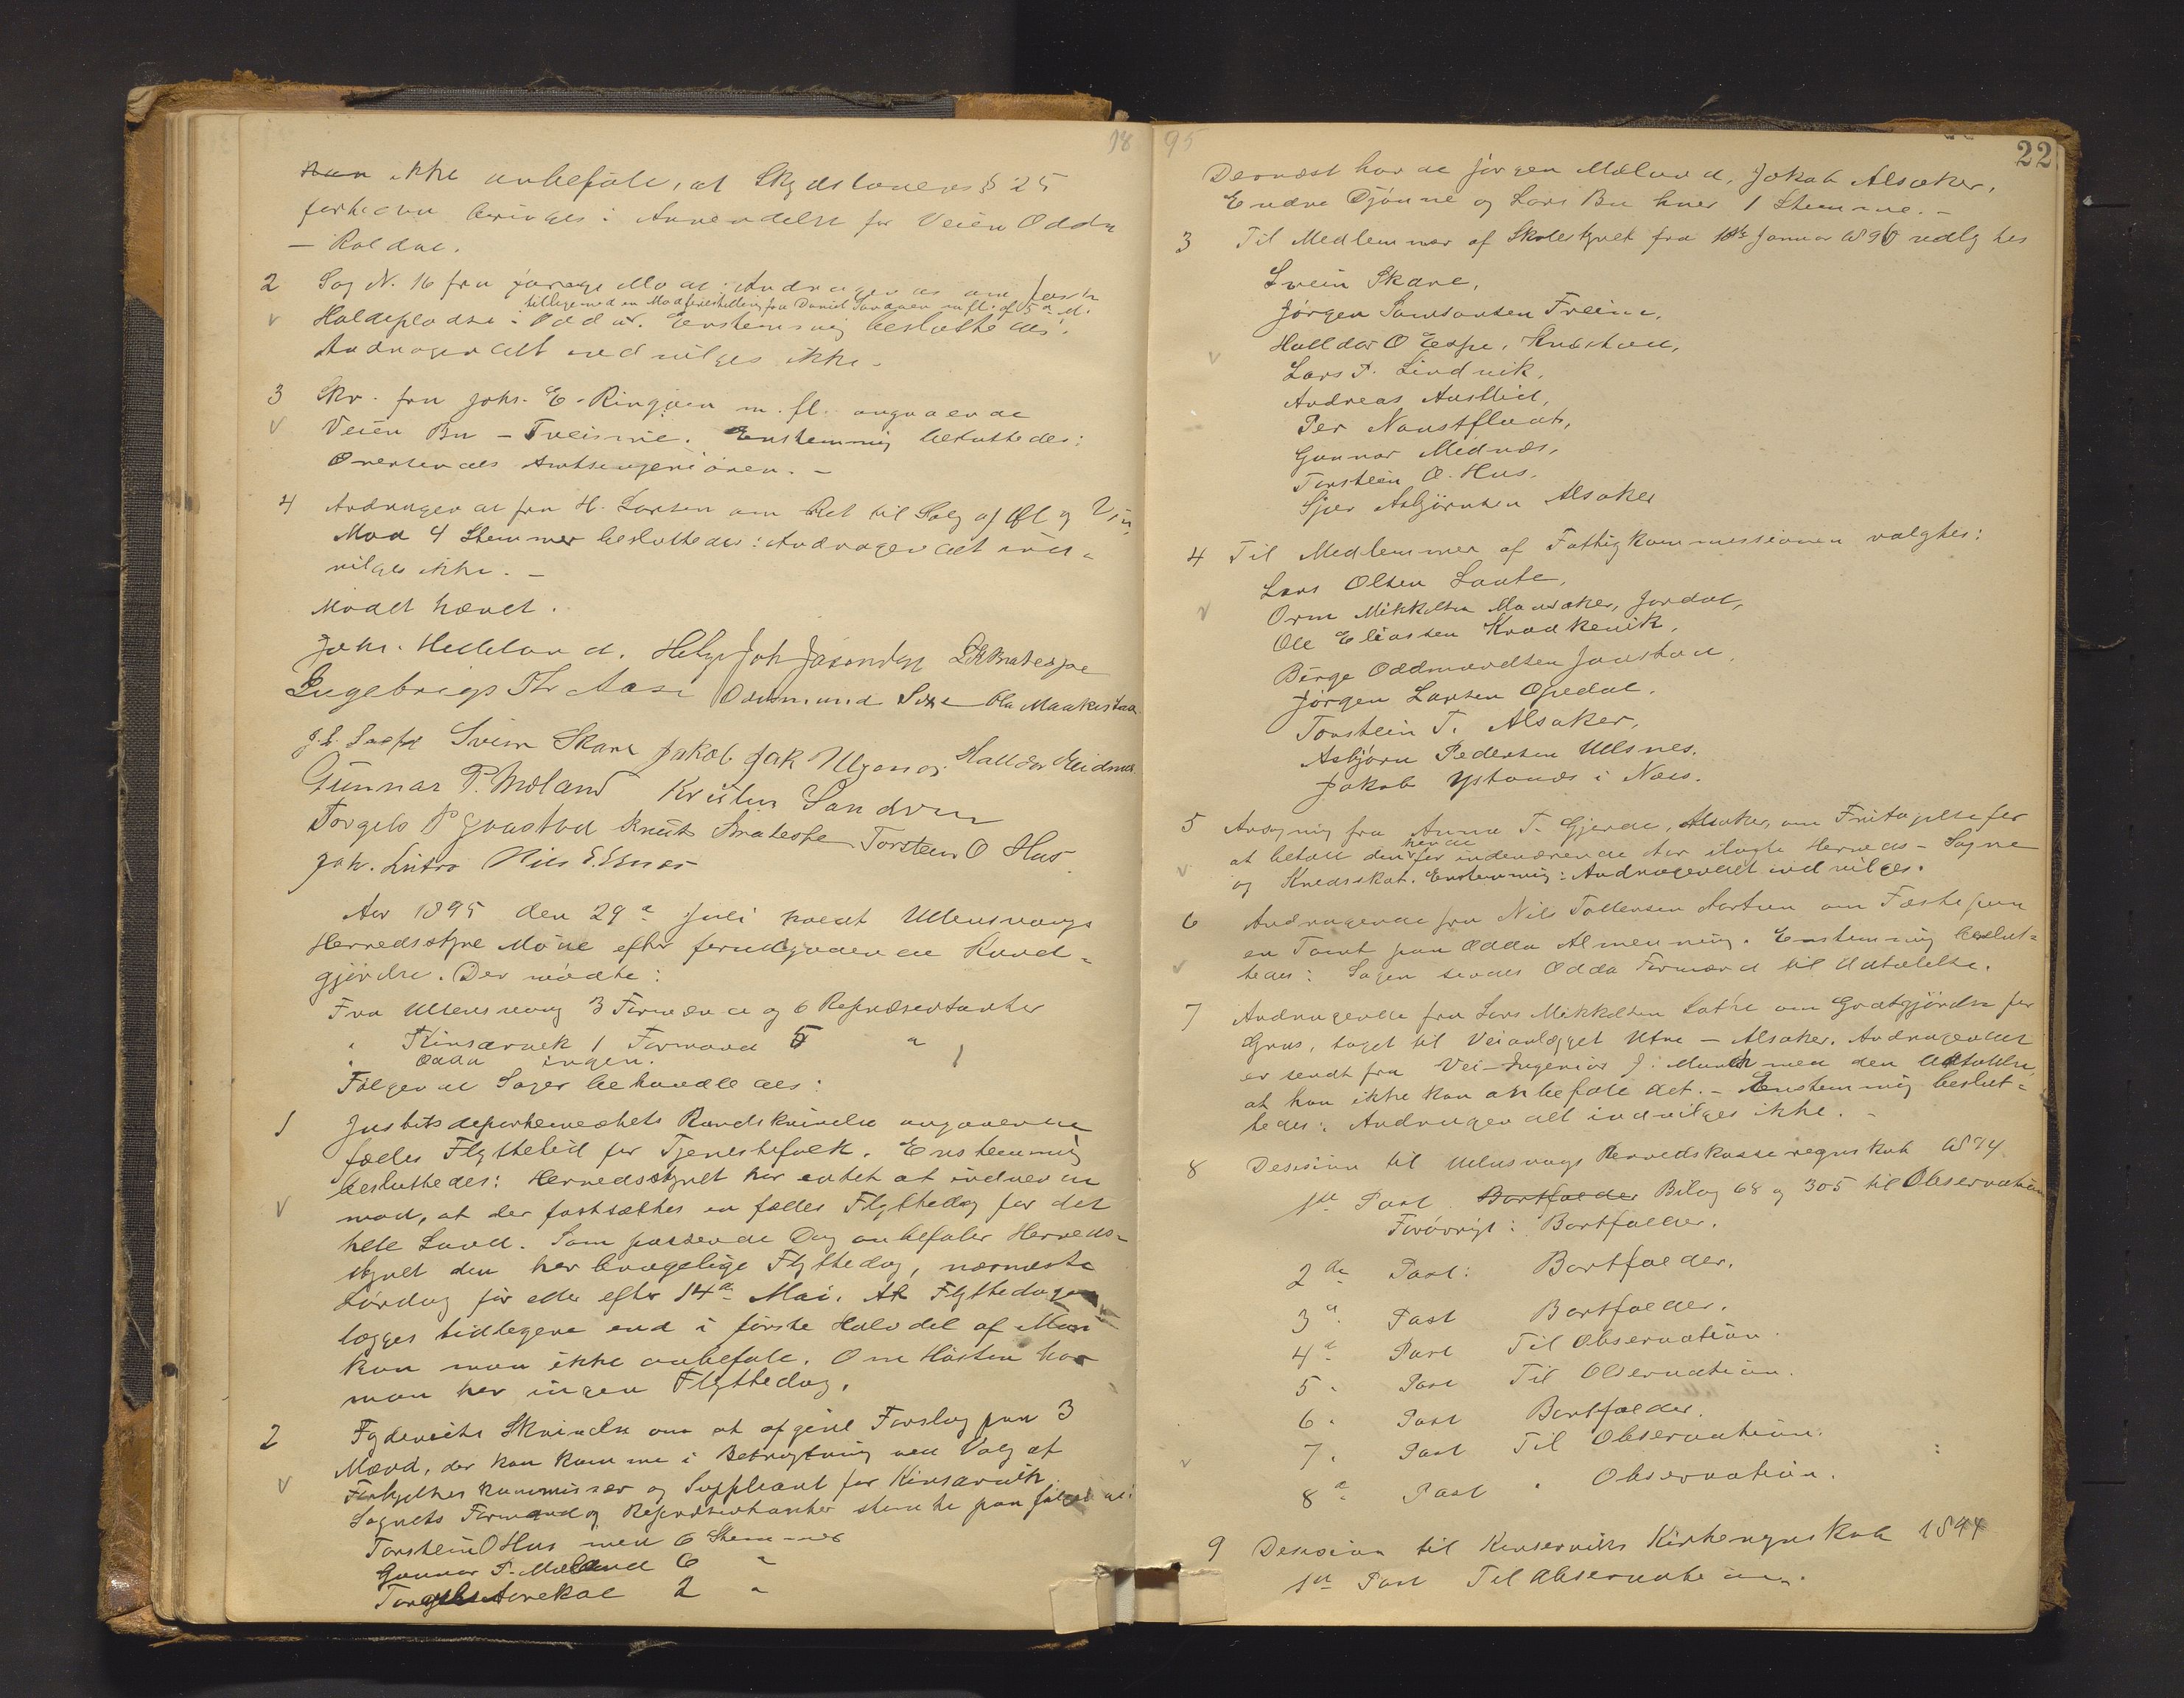 18
kan ikke anbefale, at Skydslovens § 25
forhaand bringes i Anvendelse for Veien Odda
— Røldal.
2 Sag N. 16 fra forrige Møde: Andragende om faste
tilligemed en Modforestilling fra Daniel Sandven m.fl. af 5te d.
Holdepladse i Odda. Enstemmig besluttedes:
Andragendet indvilges ikke.
3 Skr. fra Johs. E. Ringøen m. fl. angaaende
Veien Bu – Tveisme. Enstemmig besluttedes:
Oversendes Amtsingeniøren. –
4 Andragende fra H. Larsen om Ret til Salg af Øl og Vin
Mod 4 Stemmer besluttedes: Andragendet ind-
vilges ikke. –
Mødet hævet.
Johs. Helleland. Helge Joh Jaasund LKBratespe
Ingebrigt Th Aase Oddmund Sexe Ola Maakestad
J. L. Svein Skare Jakob Jak Ullgenes Halldor Eidnes
Gunnar P. Mæland Kristen Sandven
Torgils P Jaastad Knut Bratespe Torstein O Hus
Joh. Lutro Nils E. Esnes
Aar 1895 den 29de Juli holdt Ullensvangs
Herredsstyre Møde efter forudgaaende Kund-
gjørelse. Der mødte:
Fra Ullensvang 3 Formænd og 6 Repræsentanter
" Kinservik 1 Formand 5 "
" Odda ingen. 1
Følgende Sager behandledes:
1 Justitsdepartementets Rundskrivelse angaaende
fælles Flyttetid for Tjenestefolk. Enstemmig
besluttedes: Herredsstyret har intet at indvende
mod, at der fastsættes en fælles Flyttedag for det
hele Land. Som passende Dag anbefaler Herreds-
styret den her brugelige Flyttedag, nærmeste
Lørdag før eller efter 14de Mai. At Flyttedagen
lægges tidligere end i første Halvdel af Mai
kan man ikke anbefale. Om Høsten har
man her ingen Flyttedag.
2 Fogderiets Skrivelse om at afgive Forslag paa 3
Mænd, der kan komme i Betragtning ved Valg af
Forligelseskommissær og Suppleant for Kinservik
Sognets Formænd og Repræsentanter stemte paa følgende:
Torstein O Hus med 6 Stemmer
Gunnar P. Mæland 6 "
Torgils Aarekol 2 "
95
22
Dernæst havde Jørgen Mæland, Jakob Alsaker,
Endre Djønne og Lars Bu hver 1 Stemme. –
3 Til Medlemmer af Skolestyret fra 1ste Januar 1896 valgtes
Svein Skare,
Jørgen Samsonsen Freim,
Halldor O Espe, Knutstun,
Lars T. Lindvik,
Andreas Austlid,
Per Naustflaat,
Gunnar Midnæs,
Torstein O. Hus.
Sjur Asbjørnsen Alsaker
4 Til Medlemmer af Fattigkommissionen valgtes:
Lars Olsen Laate,
Orm Mikkelsen Mannsaker, Jordal,
Ole Eliassen Kraakevik,
Børge Oddmundsen Jaastad,
Jørgen Larsen Opedal.
Torstein T. Alsaker,
Asbjørn Pedersen Ullsnes.
Jakob Ystanæs i Næs.
5 Ansøgning fra Anna T. Gjerde, Alsaker, om Fritagelse for
at betale den hende for indeværende Aar ilagte Herreds- Sogne
og Kredsskat. Enstemmig: Andragendet indvilges.
6 Andragende fra Nils Tollefsen Aartun om Fæste paa
en Tomt paa Odda Almenning. Enstemmig beslut-
tedes: Sagen sendes Odda Formænd til Udtalelse.
7 Andragende fra Lars Mikkelsen Lothe om Godtgjørelse for
Grus, taget til Veianlægget Utne – Alsaker. Andragendet
er sendt fra Vei-Ingeniør J. Munch med den Udtalelse,
at han ikke kan anbefale det. – Enstemmig beslut-
tedes: Andragendet indvilges ikke. –
8 Desision til Ullensvangs Herredskasseregnskab 1894
1ste Post. Bortfalder Bilag 68 og 305 til Observation
Forøvrigt: Bortfalder.
2de Post: Bortfalder.
3de Post Bortfalder.
4de Post Til Observation.
5. Post Til Observation.
6. Post Bortfalder.
7. Post Til Observation.
8de Post " Observation.
9 Desision til Kinserviks Kirkeregnskab 1894
1ste Post Til Observation.